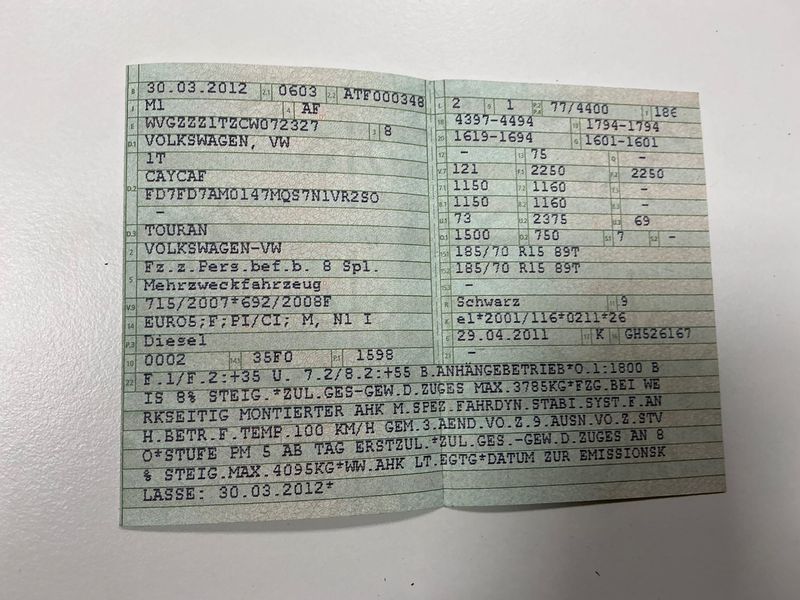 B 30.03.2012 2.1 0603 2.2 ATF000348
J M1 4 AF
E WVGZZZ1TZCW072327 3 8
D.1 VOLKSWAGEN, VW
1T
D.2 CAYCAF
FD7FD7AM0147MQS7N1VR2SO
-
D.3 TOURAN
2 VOLKSWAGEN-VW
5 Fz.z.Pers.bef.b. 8 Spl.
Mehrzweckfahrzeug
V.9 715/2007*692/2008F
14 EURO5;F;PI/CI; M, N1 I
P.3 Diesel
10 0002 14.1 35F0 P.1 1598
L 2 9 1 P.2 P.4 77/4400 T 186
18 4397-4494 19 1794-1794
20 1619-1694 G 1601-1601
12 - 13 75 Q -
V.7 121 F.1 2250 F.2 2250
7.1 1150 7.2 1160 7.3 -
8.1 1150 8.2 1160 8.3 -
U.1 73 U.2 2375 U.3 69
O.1 1500 O.2 750 S.1 7 S.2 -
15.1 185/70 R15 89T
15.2 185/70 R15 89T
15.3 -
R Schwarz 11 9
K e1*2001/116*0211*26
6 29.04.2011 17 K 16 GH526167
21 -
22 F.1/F.2:+35 U. 7.2/8.2:+55 B.ANHÄNGEBETRIEB*O.1:1800 B
IS 8% STEIG.*ZUL.GES-GEW.D.ZUGES MAX.3785KG*FZG.BEI WE
RKSEITIG MONTIERTER AHK M.SPEZ.FAHRDYN.STABI.SYST.F.AN
H.BETR.F.TEMP.100 KM/H GEM.3.AEND.VO.Z.9.AUSN.VO.Z.STV
O*STUFE PM 5 AB TAG ERSTZUL.*ZUL.GES.-GEW.D.ZUGES AN 8
% STEIG.MAX.4095KG*WW.AHK LT.EGTG*DATUM ZUR EMISSIONSK
LASSE: 30.03.2012*